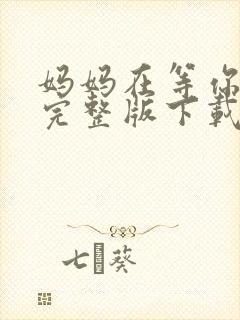 妈妈在等你
完整版下载
七葵